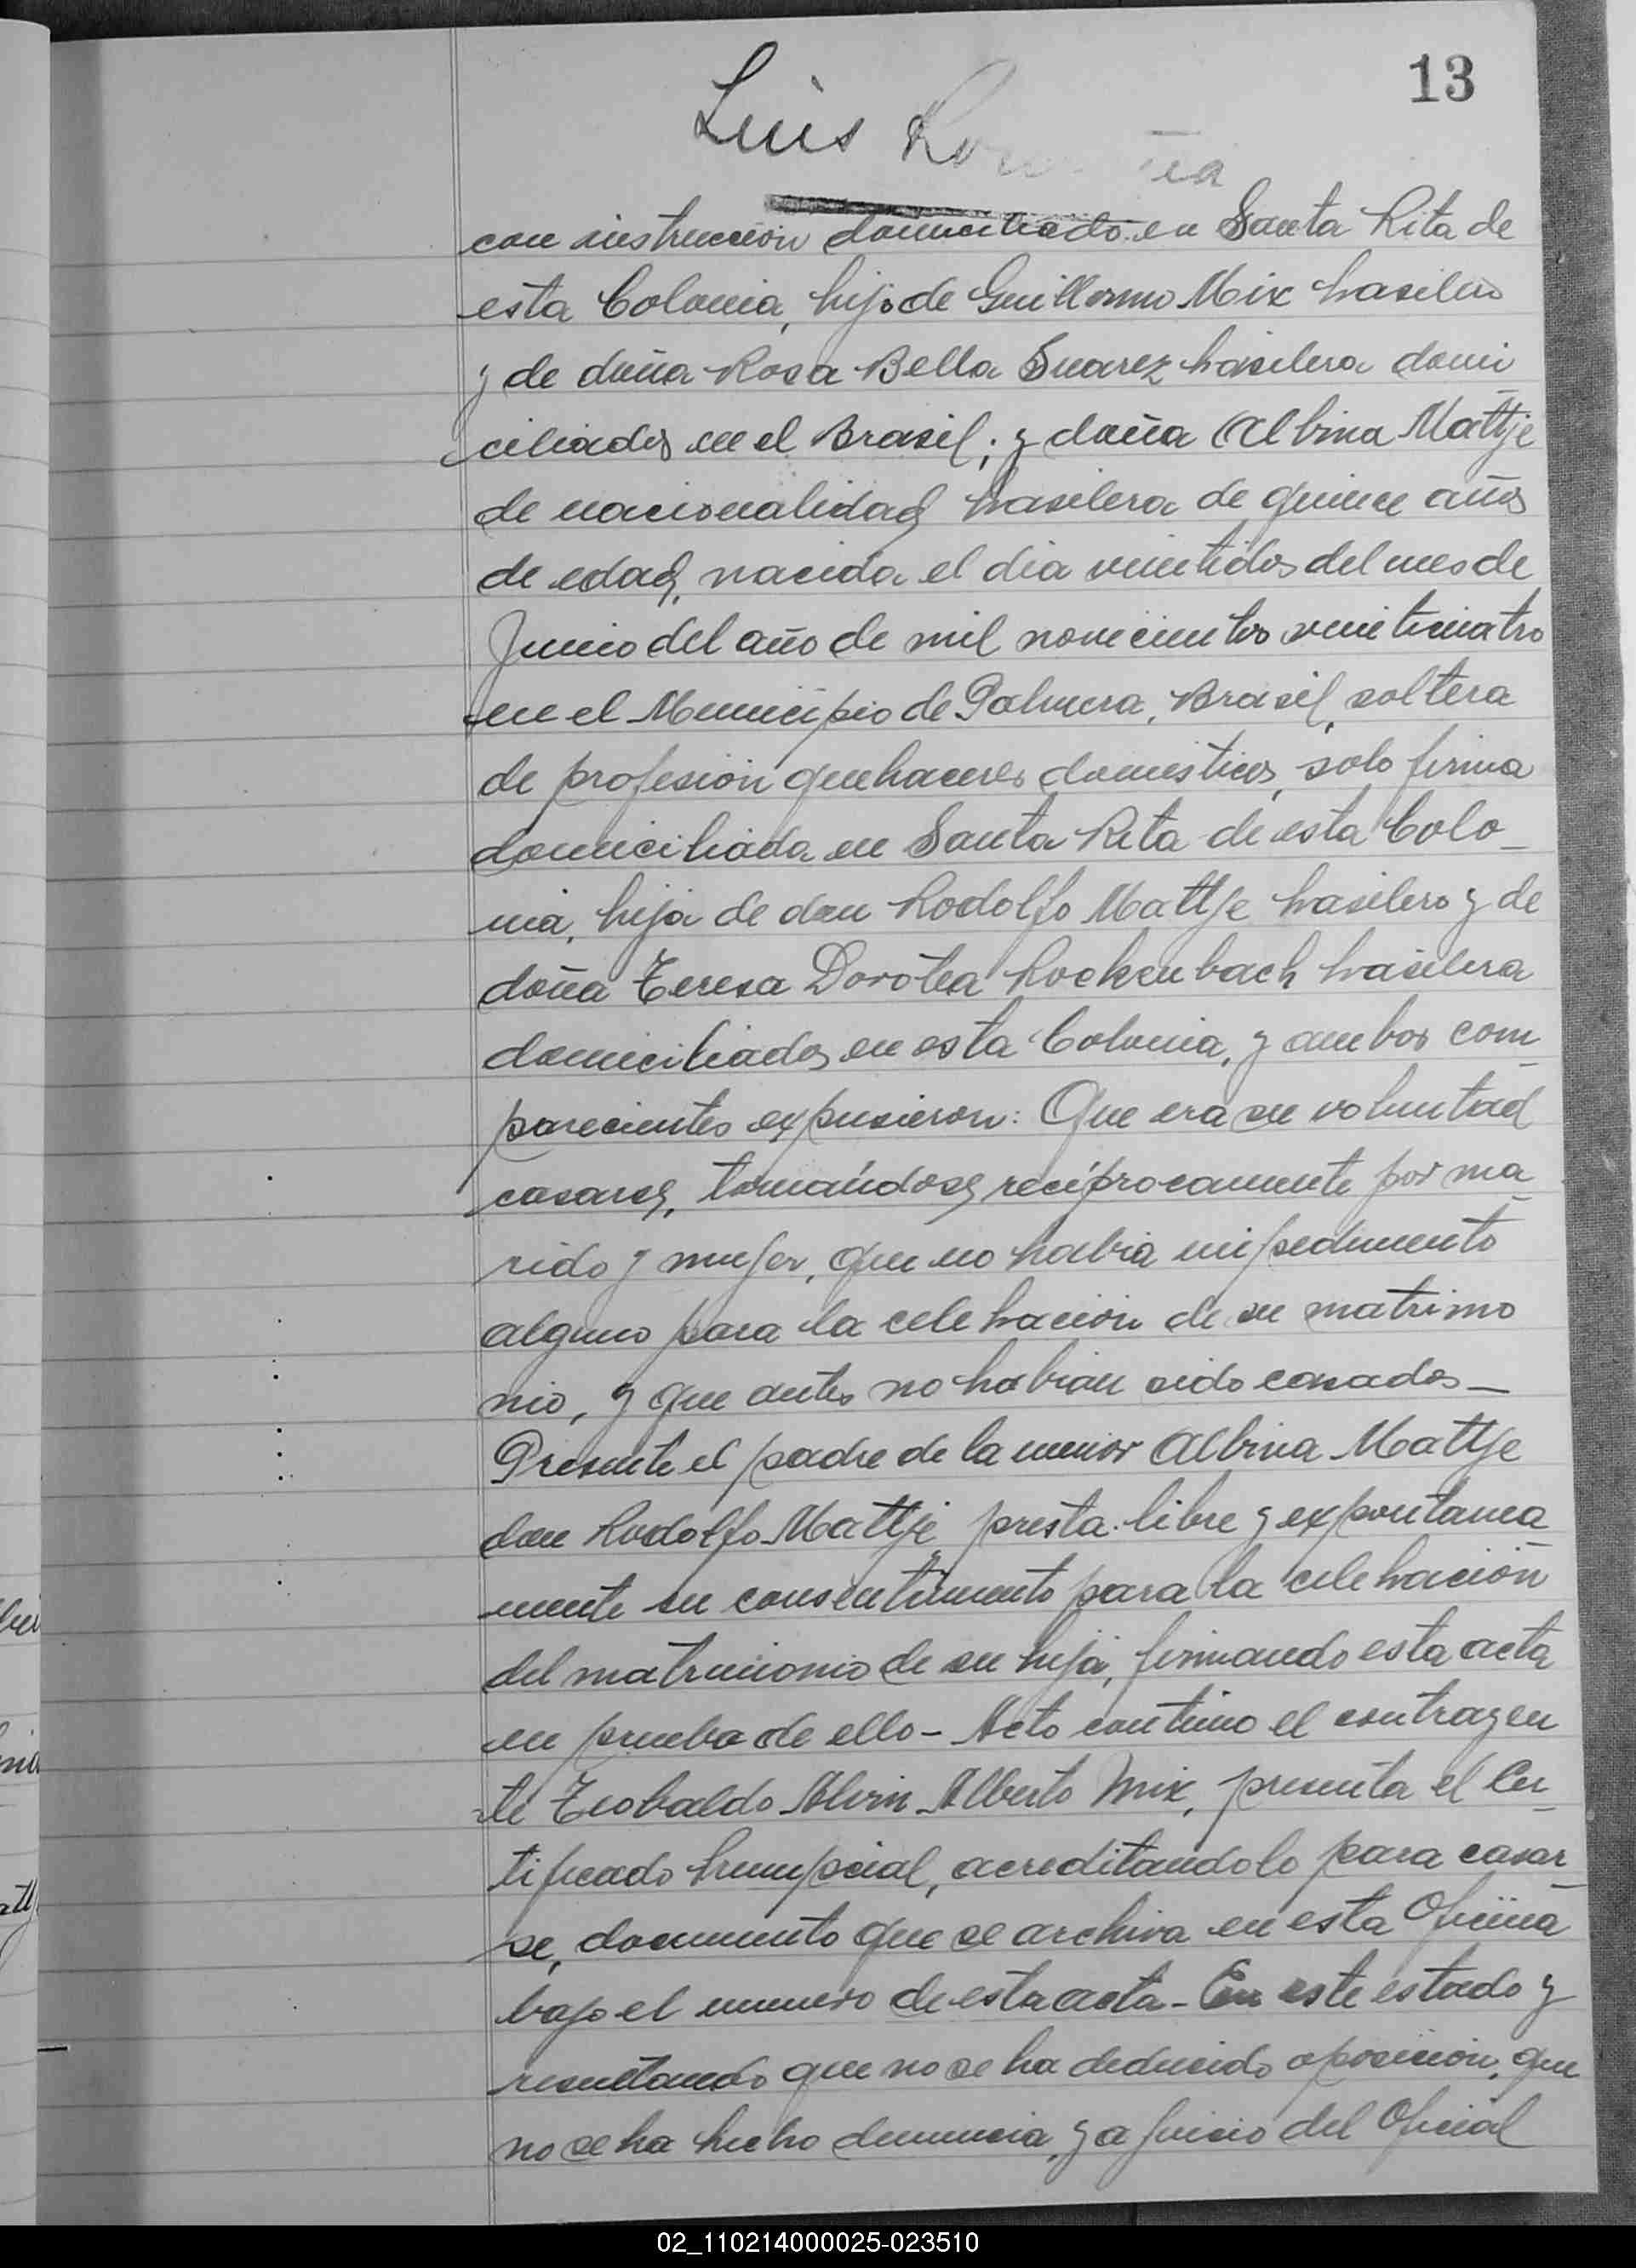 13
Luis
con instrucción domiciliado en Santa Rita de
esta Colonia, hijo de Guillermo Mix brasilero
y de doña Rosa Bella Suarez brasilera domi
ciliados en el Brasil; y doña Albina Mattje
de nacionalidad brasilera de quince años
de edad, nacida el dia veintidos del mes de
Junio del año de mil novecientos veinticuatro
en el Municipio de Palmera, Brasil, soltera
de profesión quehaceres domesticos, solo firma
domiciliada en Santa Rita de esta Colo_
nia, hija de don Rodolfo Mattje brasilero y de
doña Teresa Dorotea Rockenbach brasilera
domiciliados en esta Colonia, y ambos com_
parecientes expusieron: Que era su voluntad
casarse, tomándose recíprocamente por ma_
rido y mujer, que no habia impedimento
alguno para la celebracion de su matrimo
nio, y que antes no habian sido casados_
Presente el padre de la menor Albina Mattje
don Rodolfo Mattje presta libre y expontanea_
mente su consentimento para la celebración
del matrimonio de su hija, firmando esta acta
en prueba de ello - Acto continuo el contrayen
te Teobaldo Alvin Alberto Mix, presenta el Cer_
tificado Prenupcial, acreditandolo para casar_
se, documento que se archiva en esta Oficina
bajo el numero de esta acta - En este estado y
resultando que no se ha deducido oposicion, que
no se ha hecho denuncia, y a juicio del Oficial
02_110214000025-023510